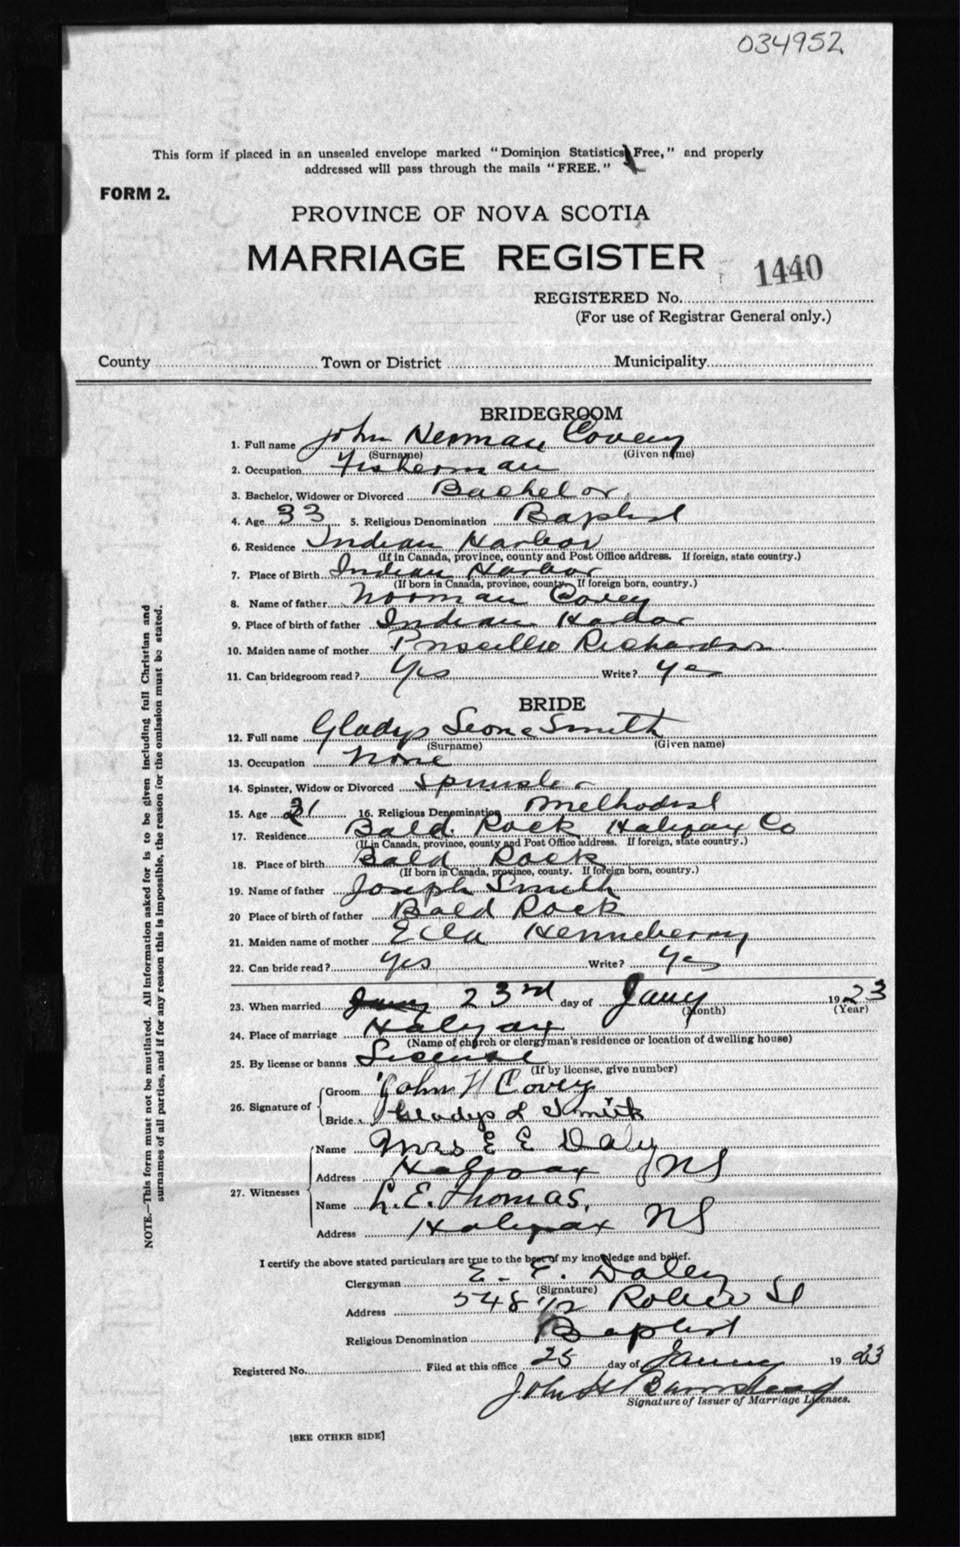 034952
This form if placed in an unsealed envelope marked "Dominion Statistics Free," and properly
addressed will pass through the mails "FREE."
FORM 2.
PROVINCE OF NOVA SCOTIA
MARRIAGE REGISTER
1440
REGISTERED No.
(For use of Registrar General only.)
County Town or District Municipality
BRIDEGROOM
1. Full name John Herman Covey
(Surname) (Given name)
2. Occupation Fisherman
3. Bachelor, Widower or Divorced Bachelor
4. Age 33 5. Religious Denomination Baptist
6. Residence Indian Harbor
(If in Canada, province, county and Post Office address. If foreign, state country.)
7. Place of Birth Indian Harbor
(If born in Canada, province, county. If foreign born, country.)
8. Name of father Norman Covey
9. Place of birth of father Indian Harbor
10. Maiden name of mother Priscilla Richardson
11. Can bridegroom read? Yes Write? Yes
BRIDE
12. Full name Gladys Leone Smith
(Surname) (Given name)
13. Occupation None
14. Spinster, Widow or Divorced Spinster
15. Age 21 16. Religious Denomination Methodist
17. Residence Bald Rock Halifax Co
(If in Canada, province, county and Post Office address. If foreign, state country.)
18. Place of birth Bald Rock
(If born in Canada, province, county. If foreign born, country.)
19. Name of father Joseph Smith
20 Place of birth of father Bald Rock
21. Maiden name of mother Ella Henneberry
22. Can bride read? Yes Write? Yes
23. When married 23rd day of Jany 1923
(Month) (Year)
24. Place of marriage Halifax
(Name of church or clergyman's residence or location of dwelling house)
25. By license or banns License
(If by license, give number)
26. Signature of Groom John H Covey
Bride Gladys L Smith
27. Witnesses Name Mrs E E Daley
Address Halifax NS
Name L. E. Thomas,
Address Halifax NS
I certify the above stated particulars are true to the best of my knowledge and belief.
Clergyman E. E. Daley
(Signature)
Address 548 1/2 Robie St
Religious Denomination Baptist
Registered No. Filed at this office 25 day of January 1923
John H Barnstead
Signature of Issuer of Marriage Licenses.
[SEE OTHER SIDE]
NOTE.—This form must not be mutilated. All information asked for is to be given including full Christian and
surnames of all parties, and if for any reason this is impossible, the reason for the omission must be stated.